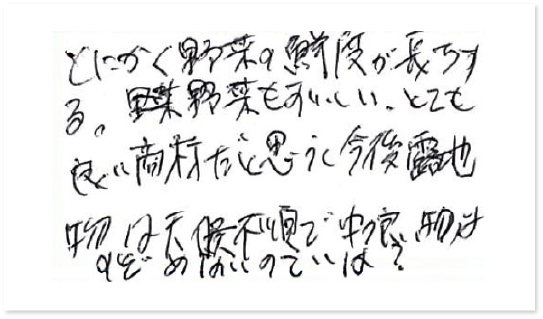 とにかく野菜の鮮度が長もちす
る。野菜もおいしい、とても
良い商材だと思うし今後露地
物は天候不順で中々良い物は
のぞめないのでは?